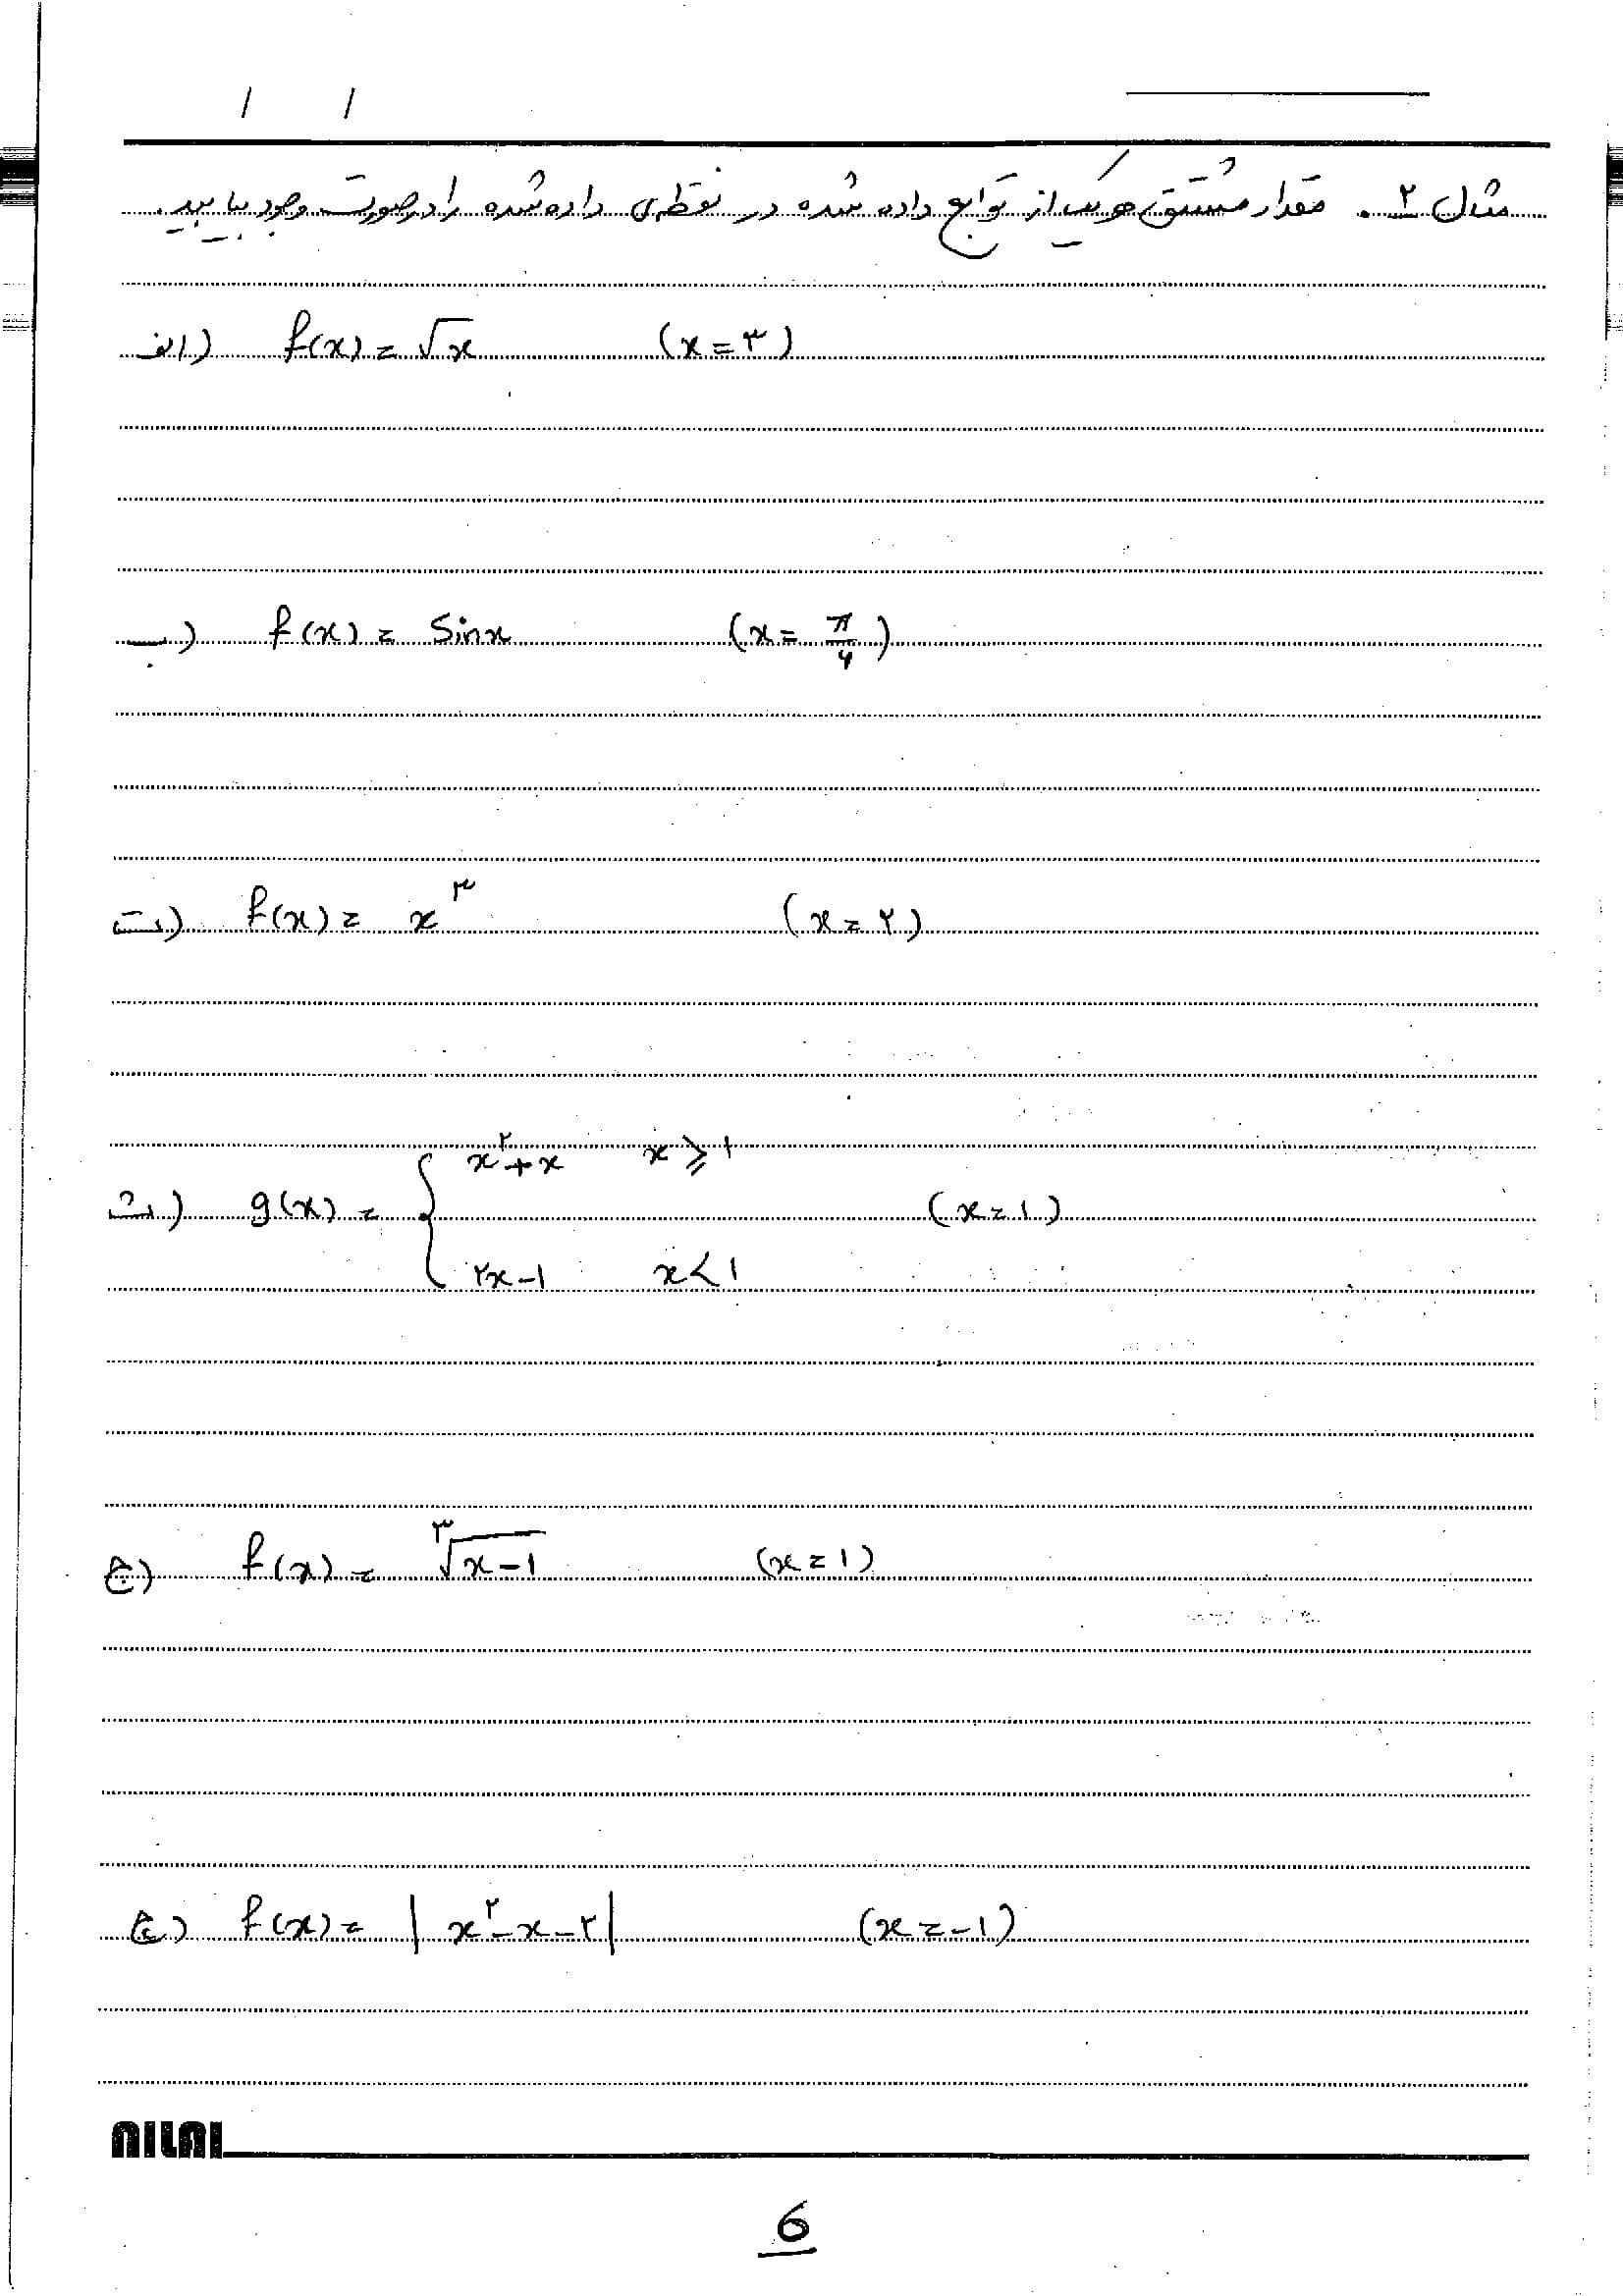 مثال ۲. مقدار مشتق هر یک از توابع داده شده در نقطه‌ی داده شده را در صورت وجود بیابید.
الف) f(x) = √x (x = ۳)
ب) f(x) = Sinx (x = π/۴)
ت) f(x) = x^۳ (x = ۲)
ث) g(x) = { x^۲ + x x ≥ ۱ (x = ۱)
۲x - ۱ x < ۱
ج) f(x) = ∛(x - ۱) (x = ۱)
چ) f(x) = |x^۲ - x - ۲| (x = -۱)
NILAI
6